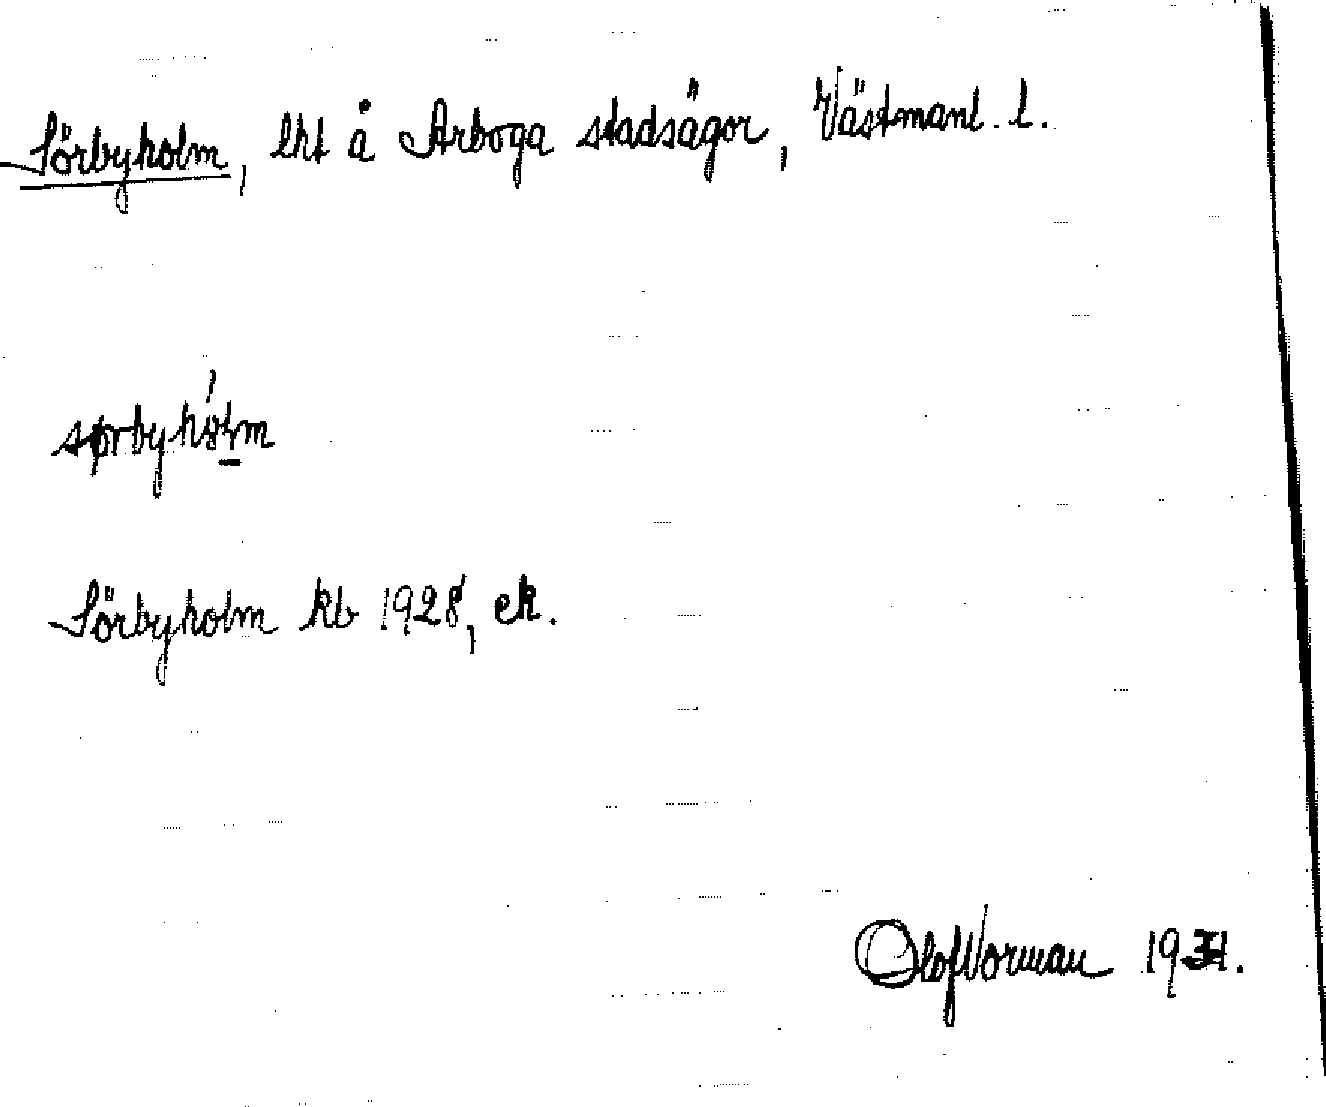 Sörbyholm, lht å Arboga stadsägor, Västmanl. l.
sørbyhólm
Sörbyholm kb 1928, ek.
Olof Norman 1931.